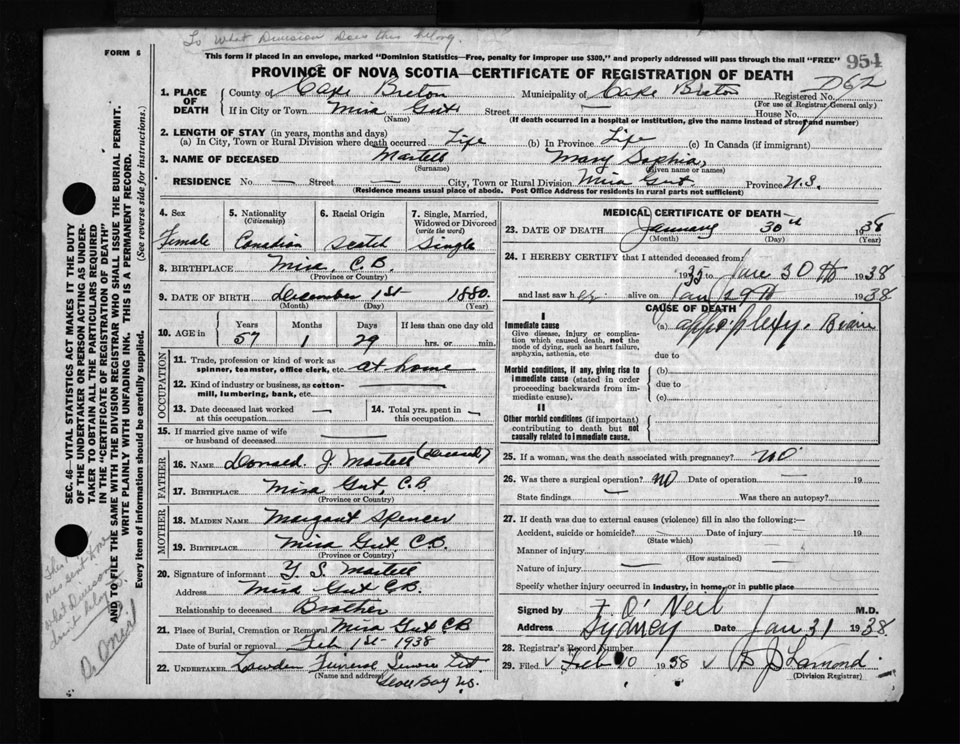 To What Division Does this belong.
FORM 6
This form if placed in an envelope, marked "Dominion Statistics—Free, penalty for improper use $300," and properly addressed will pass through the mail "FREE"
954
PROVINCE OF NOVA SCOTIA—CERTIFICATE OF REGISTRATION OF DEATH
1. PLACE OF DEATH
County of Cape Breton Municipality of Cape Breton Registered No. 762
(For use of Registrar General only)
If in City or Town Mira Gut Street — House No.
(Name) (If death occurred in a hospital or institution, give the name instead of street and number)
2. LENGTH OF STAY (in years, months and days)
(a) In City, Town or Rural Division where death occurred Life (b) In Province Life (c) In Canada (if immigrant)
3. NAME OF DECEASED Martell Mary Sophia,
(Surname) (Given name or names)
RESIDENCE No. — Street — City, Town or Rural Division Mira Gut. Province N.S.
(Residence means usual place of abode. Post Office Address for residents in rural parts not sufficient)
4. Sex Female
5. Nationality (Citizenship) Canadian
6. Racial Origin Scotch
7. Single, Married, Widowed or Divorced (write the word) Single
8. BIRTHPLACE Mira, C.B.
(Province or Country)
9. DATE OF BIRTH December 1st 1880.
(Month) (Day) (Year)
10. AGE in Years Months Days If less than one day
57 1 29 hrs. or min.
OCCUPATION
11. Trade, profession or kind of work as spinner, teamster, office clerk, etc. at home
12. Kind of industry or business, as cotton-mill, lumbering, bank, etc. —
13. Date deceased last worked at this occupation —
14. Total yrs. spent in this occupation —
15. If married give name of wife or husband of deceased —
FATHER
16. NAME Donald. J. Martell (deceased)
17. BIRTHPLACE Mira Gut, C.B.
(Province or Country)
MOTHER
18. MAIDEN NAME Margaret Spencer
19. BIRTHPLACE Mira Gut. C.B.
(Province or Country)
20. Signature of informant Y. S. Martell
Address Mira Gut C.B.
Relationship to deceased Brother
21. Place of Burial, Cremation or Removal Mira Gut C.B
Date of burial or removal Feb 1st 1938
22. UNDERTAKER Funeral
(Name and address)
MEDICAL CERTIFICATE OF DEATH
23. DATE OF DEATH January 30th 1938
(Month) (Day) (Year)
24. I HEREBY CERTIFY that I attended deceased from:
1935 to Jan 30th 1938
and last saw her alive on Jan 29th 1938
CAUSE OF DEATH
I
Immediate cause
Give disease, injury or complication which caused death, not the mode of dying, such as heart failure, asphyxia, asthenia, etc
(a) appoplexy.
due to
Morbid conditions, if any, giving rise to immediate cause (stated in order proceeding backwards from immediate cause).
(b)
due to
(c)
II
Other morbid conditions (if important) contributing to death but not causally related to immediate cause.
25. If a woman, was the death associated with pregnancy? NO
26. Was there a surgical operation? NO Date of operation 19
State findings — Was there an autopsy?
27. If death was due to external causes (violence) fill in also the following:—
Accident, suicide or homicide? Date of injury 19
(State which)
Manner of injury
(How sustained)
Nature of injury
Specify whether injury occurred in industry, in home, or in public place
Signed by F O'Neil M.D.
Address Sydney Date Jan 31 1938.
28. Registrar's Record Number
29. Filed Feb 10 1938 Lamond
(Division Registrar)
SEC. 46—VITAL STATISTICS ACT MAKES IT THE DUTY
OF THE UNDERTAKER OR PERSON ACTING AS UNDER-
TAKER TO OBTAIN ALL THE PARTICULARS REQUIRED
IN THE "CERTIFICATE OF REGISTRATION OF DEATH"
AND TO FILE THE SAME WITH THE DIVISION REGISTRAR WHO SHALL ISSUE THE BURIAL PERMIT.
WRITE PLAINLY WITH UNFADING INK. THIS IS A PERMANENT RECORD.
Every item of information should be carefully supplied. (See reverse side for instructions.)